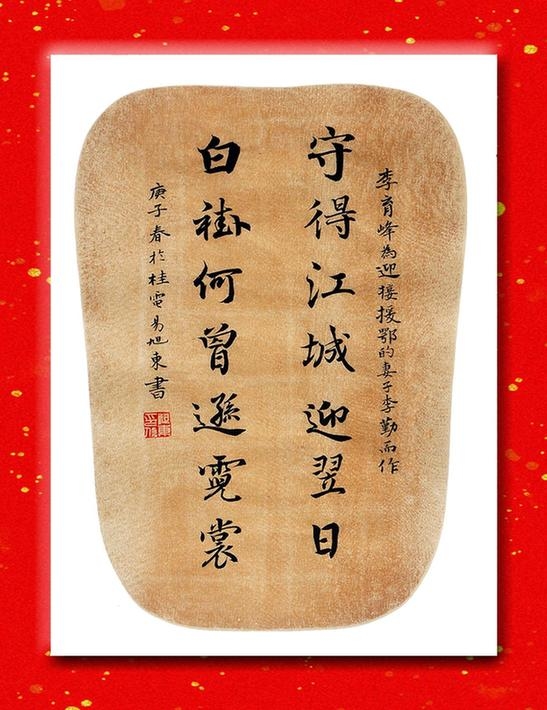 李育峰為迎接援鄂的妻子李勤而作
守得江城迎翌日
白褂何曾遜霓裳
庚子春於桂電易旭東書